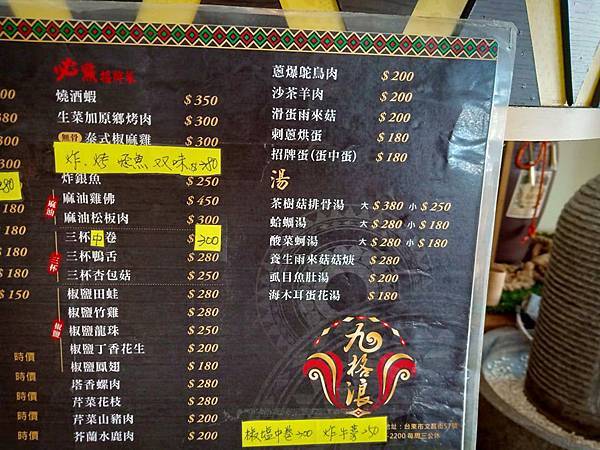 必點招牌菜
燒酒蝦 $350
生菜加原鄉烤肉 $300
無骨 泰式椒麻雞 $300
炸銀魚 $250
麻油
麻油雞佛 $450
麻油松板肉 $300
三杯
三杯中卷 $300
三杯鴨舌 $280
三杯杏包菇 $250
椒鹽
椒鹽田蛙 $280
椒鹽竹雞 $280
椒鹽龍珠 $250
椒鹽丁香花生 $200
椒鹽鳳翅 $180
塔香螺肉 $280
芹菜花枝 $280
芹菜山豬肉 $200
芥蘭水鹿肉 $200
蔥爆鴕鳥肉 $200
沙茶羊肉 $200
滑蛋雨來菇 $200
刺蔥烘蛋 $180
招牌蛋(蛋中蛋) $180
湯
茶樹菇排骨湯 大 $380 小 $250
蛤蠣湯 大 $280 小 $180
酸菜蚵湯 大 $280 小 $180
養生雨來菇菇煲 $280
虱目魚肚湯 $200
海木耳蛋花湯 $180
九格浪
地址：台東市文昌街57號
-2200 每周三公休
椒鹽中卷300
$180
$180
$180
$180
$150
時價
時價
時價
時價